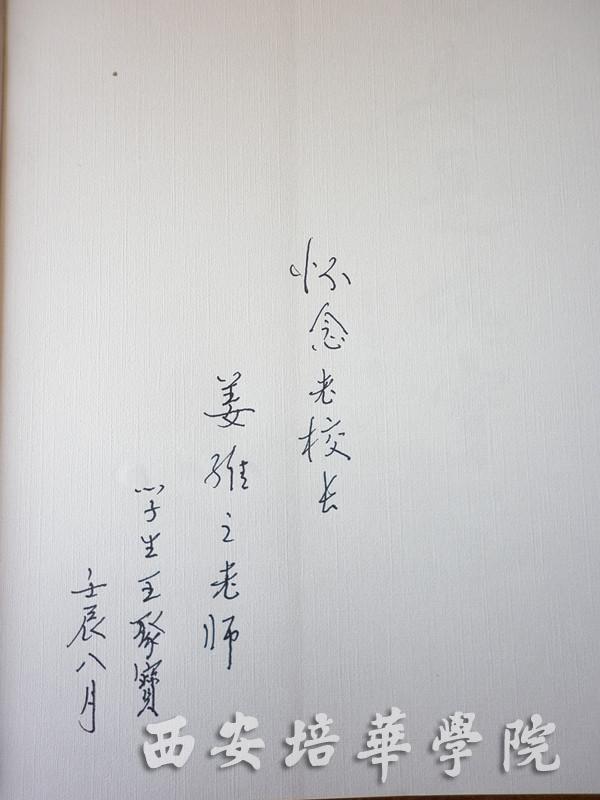 怀念老校长
姜维之老师
学生王聚寳
壬辰八月
西安培華學院